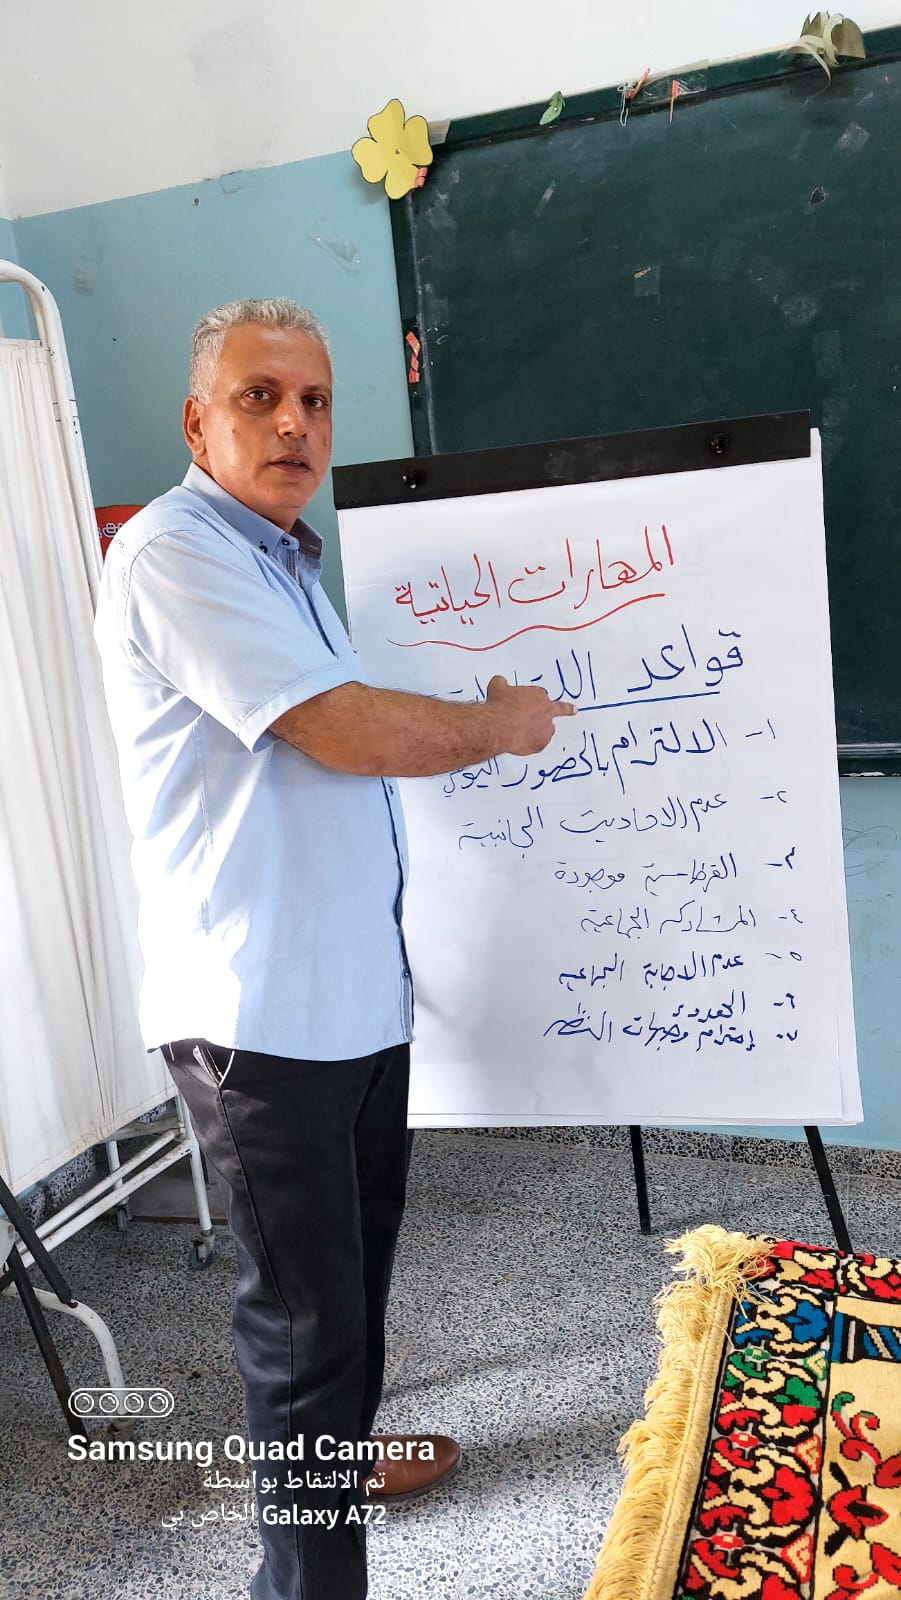 المهارات الحياتية
قواعد
١- الالتزام بالحضور اليومي
٢- عدم الاحاديث الجانبية
٣- القرطاسية موجودة
٤- المشاركه الجماعية
٥- عدم الاجابة الجماعيه
٦-
٧- إحترام وجهات النظر
Samsung Quad Camera
تم الالتقاط بواسطة
Galaxy A72 الخاص بي